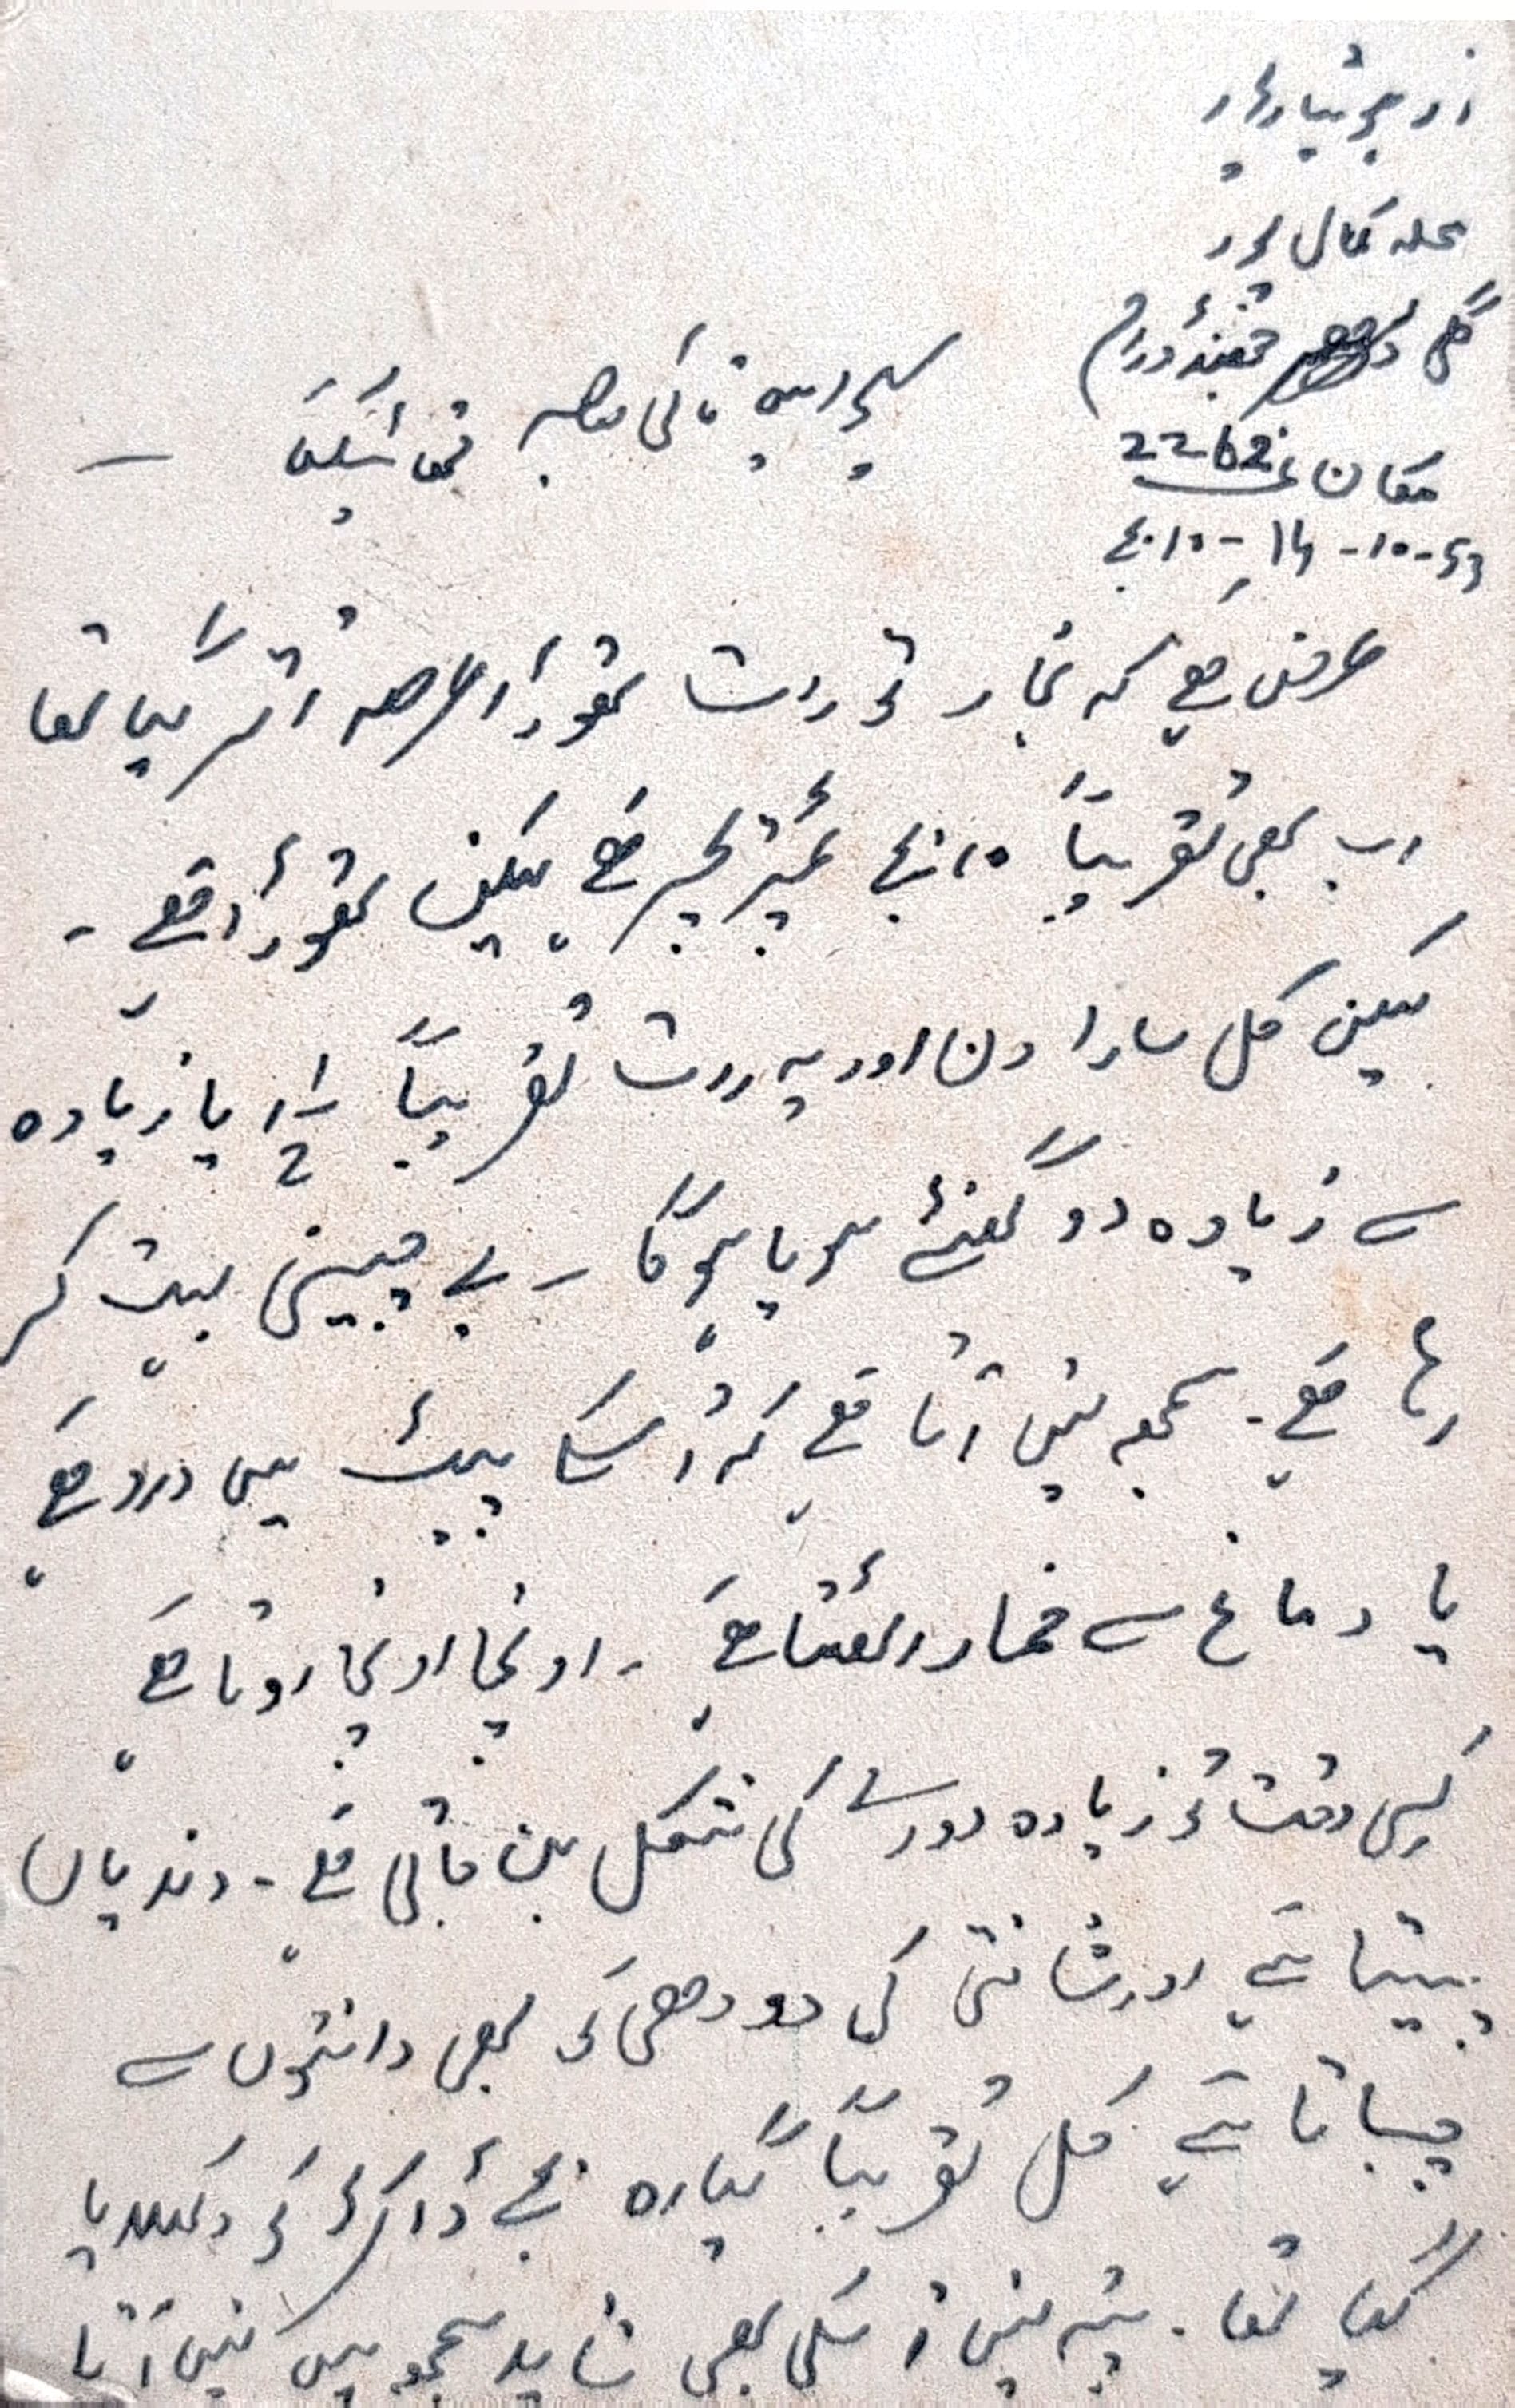 از ہوشیارپور
محلہ کمال پور
گلی جھنڈورام
مکان نمبر 2262
10 بجے - 14 -10-53
پوجیہ پتا جی صاحب نمستے
عرض ہے کہ بخار تو رات تھوڑا عرصہ اتر گیا تھا
اب بھی تقریباً 10 بجے ٹمپریچر ہے لیکن تھوڑا ہے ۔
لیکن کل سارا دن اور یہ رات تقریباً 1½ یا زیادہ
سے زیادہ دو گھنٹے سویا ہوگا ۔ بے چینی بہت کر
رہا ہے ۔ سمجھ نہیں آتا ہے کہ اُسکے پیٹ میں درد ہے
یا دماغ سے خمار اٹھتا ہے ۔ اونچا اونچا روتا ہے
کسی وقت تو زیادہ دورے کی شکل بن جاتی ہے ۔ دندیاں
پیستا ہے اور شانتی کی دودھی کو بھی دانتوں سے
چباتا ہے کل تقریباً گیارہ بجے ڈاکٹر کو دکھلایا
گیا تھا ۔ پتہ نہیں اُسکی بھی شاید سمجھ میں نہیں آتا